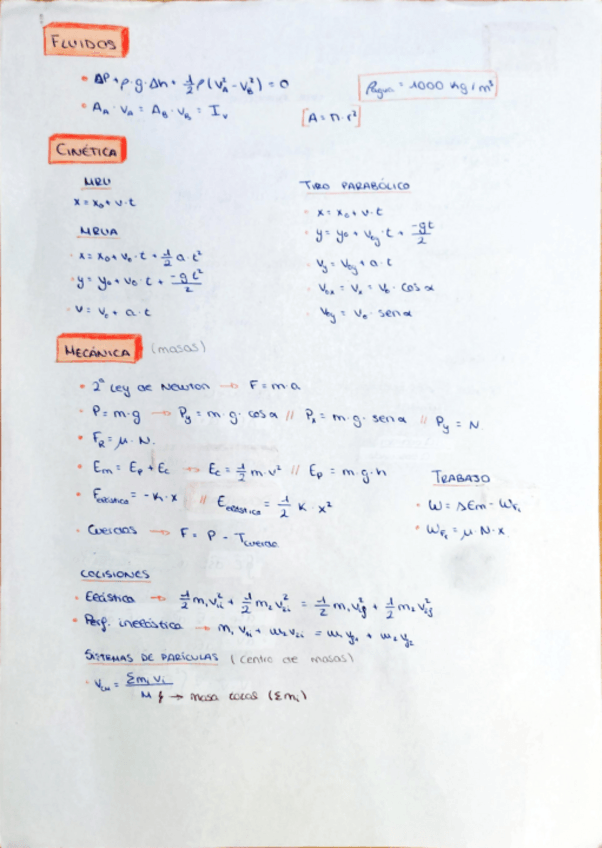 FLUIDOS
• ΔP + ρ·g·Δh + 1/2 ρ(V_A² - V_B²) = 0
ρagua = 1000 kg/m³
• A_A · V_A = A_B · V_B = I_v
[A = π·r²]
CINÉTICA
MRU
x = x₀ + v·t
MRUA
· x = x₀ + v₀·t + 1/2 a·t²
· y = y₀ + v₀·t + -gt²/2
· v = v₀ + a·t
TIRO PARABÓLICO
· x = x₀ + v·t
· y = y₀ + v₀y·t + -gt/2
· Vy = V₀y + a·t
· V₀x = Vx = V₀·cosα
· V₀y = V₀·senα
MECÁNICA (masas)
• 2ª Ley de Newton → F = m·a
• P = m·g → Py = m·g·cosα // Px = m·g·senα // Py = N
• F_R = μ·N.
• Em = Ep + Ec → Ec = 1/2 m·v² // Ep = m·g·h
• Felástica = -K·x // Eelástica = 1/2 K·x²
· Cuerdas → F = P - Tcuerda
TRABAJO
• W = ΔEm - W_FR
• W_FR = μ·N·x
COLISIONES
· Elástica → 1/2 m₁v₁ᵢ² + 1/2 m₂v₂ᵢ² = 1/2 m₁v₁f² + 1/2 m₂v₂f²
• Perf. inelástica → m₁v₁ᵢ + m₂v₂ᵢ = m₁vf₁ + m₂vf₂
SISTEMAS DE PARÍCULAS (Centro de masas)
· V_CM = Σmᵢvᵢ / M } → masa total (Σmᵢ)